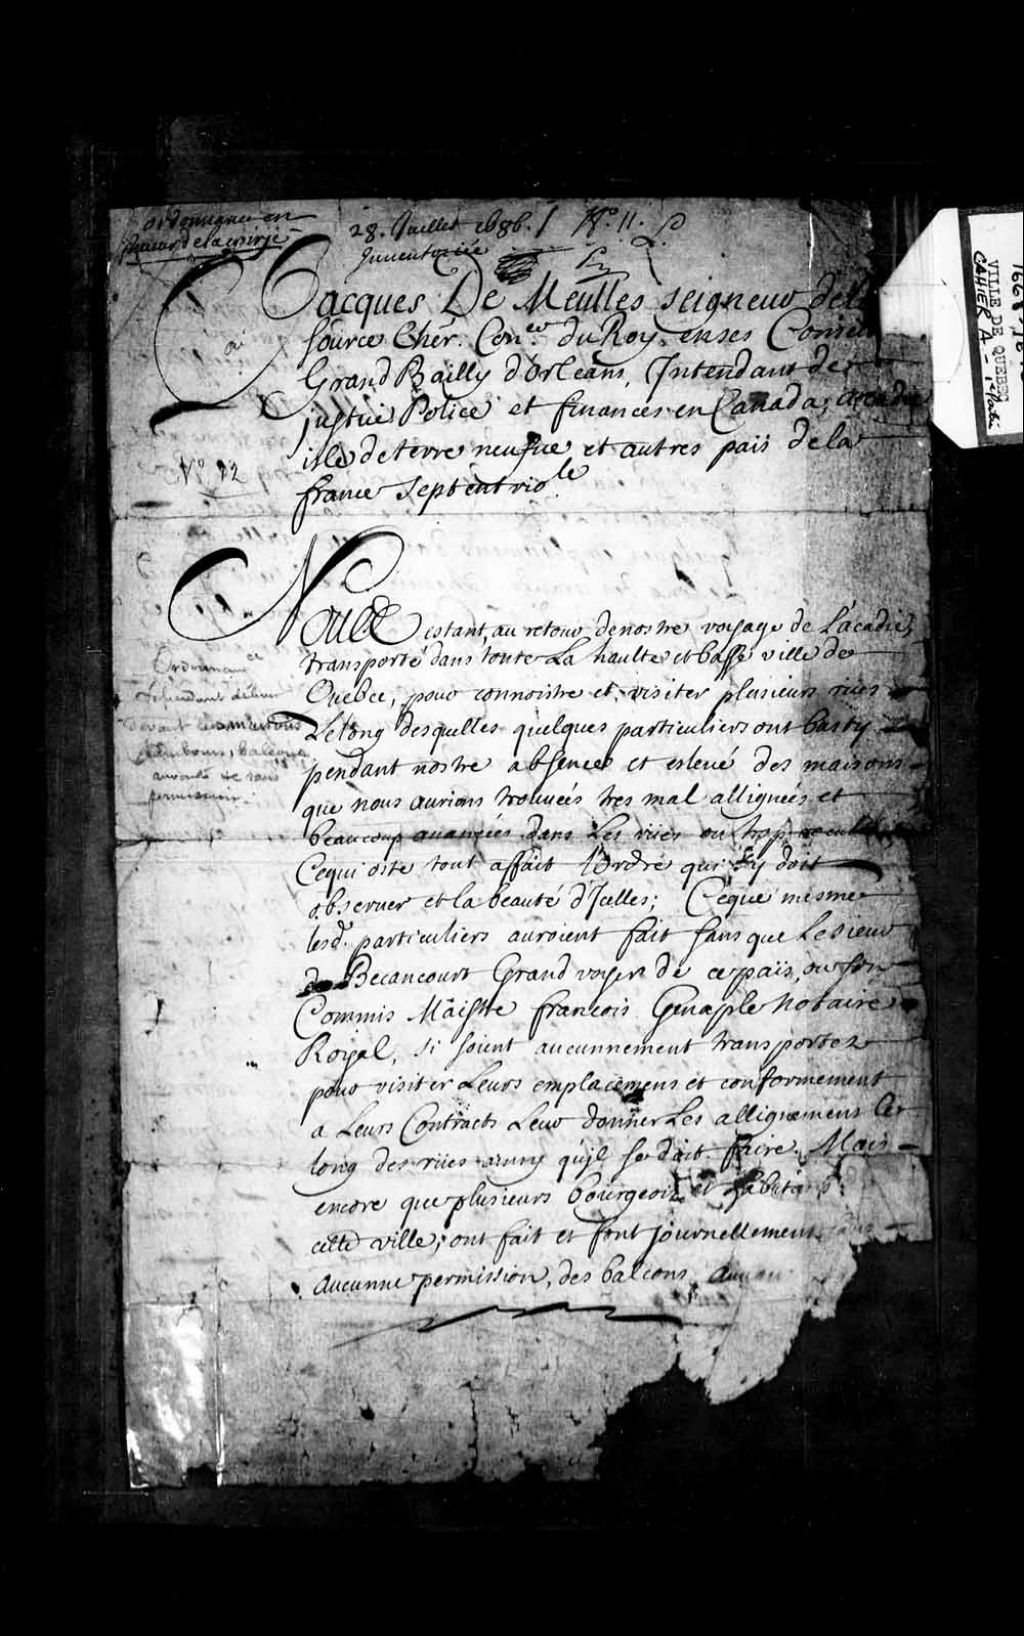 ordonnance en
faueur de la voirie
28. Juillet 1686. / N.º 11.
Inuentoriée
Jacques De Meulles seigneur dela
source Cher. Con.er du Roy. en ses Conseils
Grand Bailly d'Orleans, Intendant de
justice Police et finances en Canada, Acadie
isle de terre neufue et autres païs de la
france Septentrio.le
Nº 22
Nous estant, au retour de nostre voyage de l'acadie,
transporté dans toute La haulte et basse ville de
Quebec, pour connoistre et visiter plusieurs rues
Le long desquelles quelques particuliers ont basty
pendant nostre absence et esleué des maisons
que nous aurions trouuées tres mal alligneés et
beaucoup auancées dans Les rües ou trop
Cequi oste tout affait l'Ordre qui s'y doit
obseruer et la beauté d'Icelles; Ceque mesme
lesd. particuliers auroient fait sans que Le sieur
de Becancourt Grand voyer de ce païs, ou son
Commis Maistre francois Genaple Notaire
Royal, si soient aucunnement transportez
pour visiter Leurs emplacemens et conformement
a Leurs Contracts Leur donner Les allignemens Le
long des rües ainsy qu'jl se doit faire. Mais
encore que plusieurs bourgeois et habitans
cette ville; ont fait et font journellement sans
aucunne permission, des balcons,
Ordonnance
deffendant
devant les maisons
tambours, balcons,
auvents &c sans
permission.
VILLE DE QUEBEC
CAHIER A -